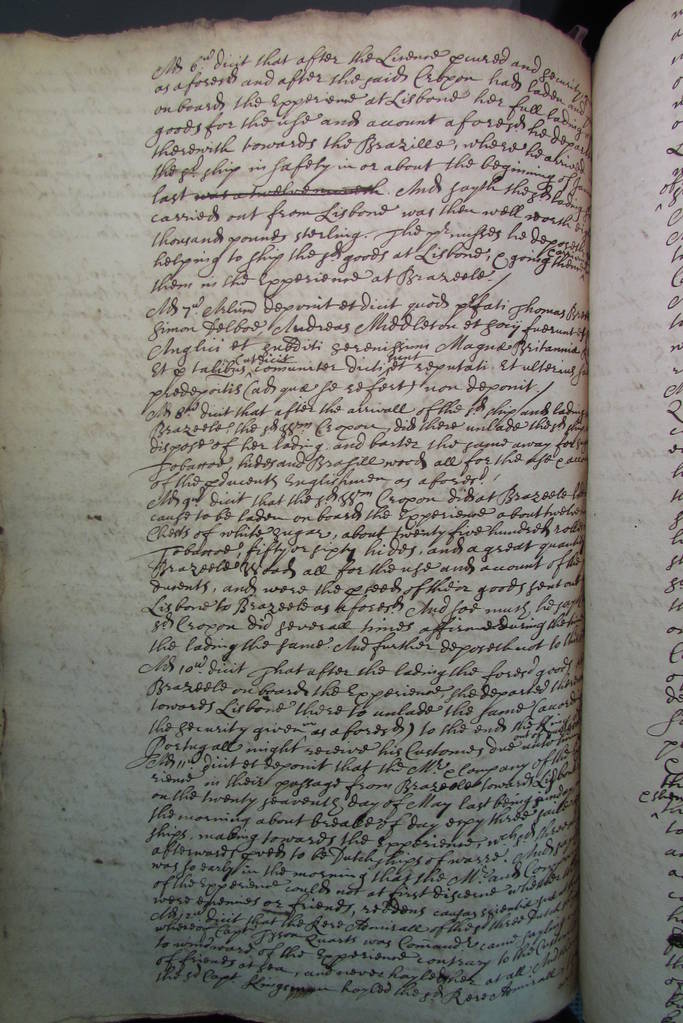 Ad 6um dicit that after the Licence pcured and security
as aforesd and after the said Cropon had laden and
on board the Experience at Lisbone her full lading
goods for the use and account aforesd he depar
therewith towards the Brazille, where he arrived
the sd ship in safety in or about the beginning of
last was a twelvemoneth. And sayth the sd lading
carried out from Lisbone was then well worth
thousand pounds sterling. The prmisses he deposeth
helping to ship the sd goods at Lisbone, & going
them in the Experience at Brazeele./
Ad 7um Arlum deponit et dicit quod pfati Thomas
Simon Delboe, Andreas Middleton et socij fuerunt et
Anglici et subditi serenissimi Magnæ Britanniæ
Et p talibus comuniter dicti et reputati. Et ulterius
predeportis (ad quæ se refert) non deponit./
Ad 8um dicit that after the arrivall of the sd ship and lading
Brazeele the sd Wm Cropon, did there unlade the sd
dispose of her lading, and barter the same away for
Tobaccoe, hides and Brasill wood, all for the use & accou
of the pducents Englishmen as aforesd/
Ad 9um dicit that the sd Wm Cropon did at Brazeele
cause to be laden on board the Experience about twelve
Chests of white sugar, about twenty five hundred rolls
Tobaccoe, fifty or sixty hides, and a great quantity
Brazeele wood all for the use and account of the
ducents, and were the pceed of their goods sent out
Lisbone to Brazeele as aforesd And soe much he sayth
sd Cropon did severall times affirme during the
the lading the same And further deposeth not to this
Ad 10um dicit That after the lading the foresd goods
Brazeele on board the Experience she departed
towards Lisbone there to unlade the same (accord
the security given in as aforesd) to the end the King
Portugall might receive his Customes due
Ad 11um dicit et deponit that the Mr & Company of the
rience in their passage from Brazeele towards Lisbone
on the twenty seaventh day of May last being sunday
the morning about breake of day espy three saile
ships, making towards the Experience, wch sd three
afterwards pved to be Dutch ships of warre: And
was so early in the morning that the Mr and Company
of the Experience could not at first discerne whether
were enemies or friends, reddens causas scientiæ
Ad 12um dicit that the Rere Admirall of the sd three Dutch
whereof Capt Tyson Quarts was Comander came
to windward of the Experience contrary to the Custome
of friends at sea, and never hayled her at all: And
the sd Capt Kingsman hayled the sd Rere Admirall